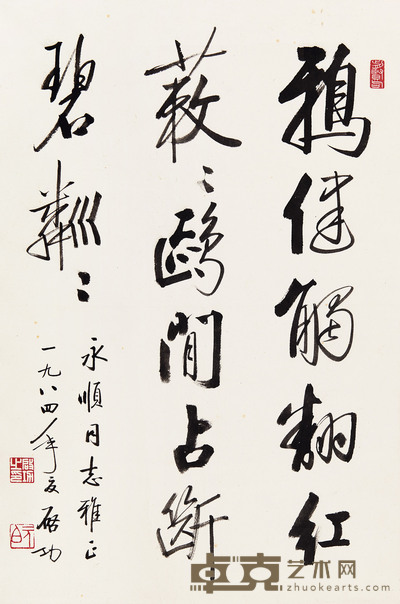 鴉健觸翻紅
蔌〻鷗閒占斷
碧粼〻
永順同志雅正
一九八四年夏 啟功
卓克艺术网
zhuokearts.com